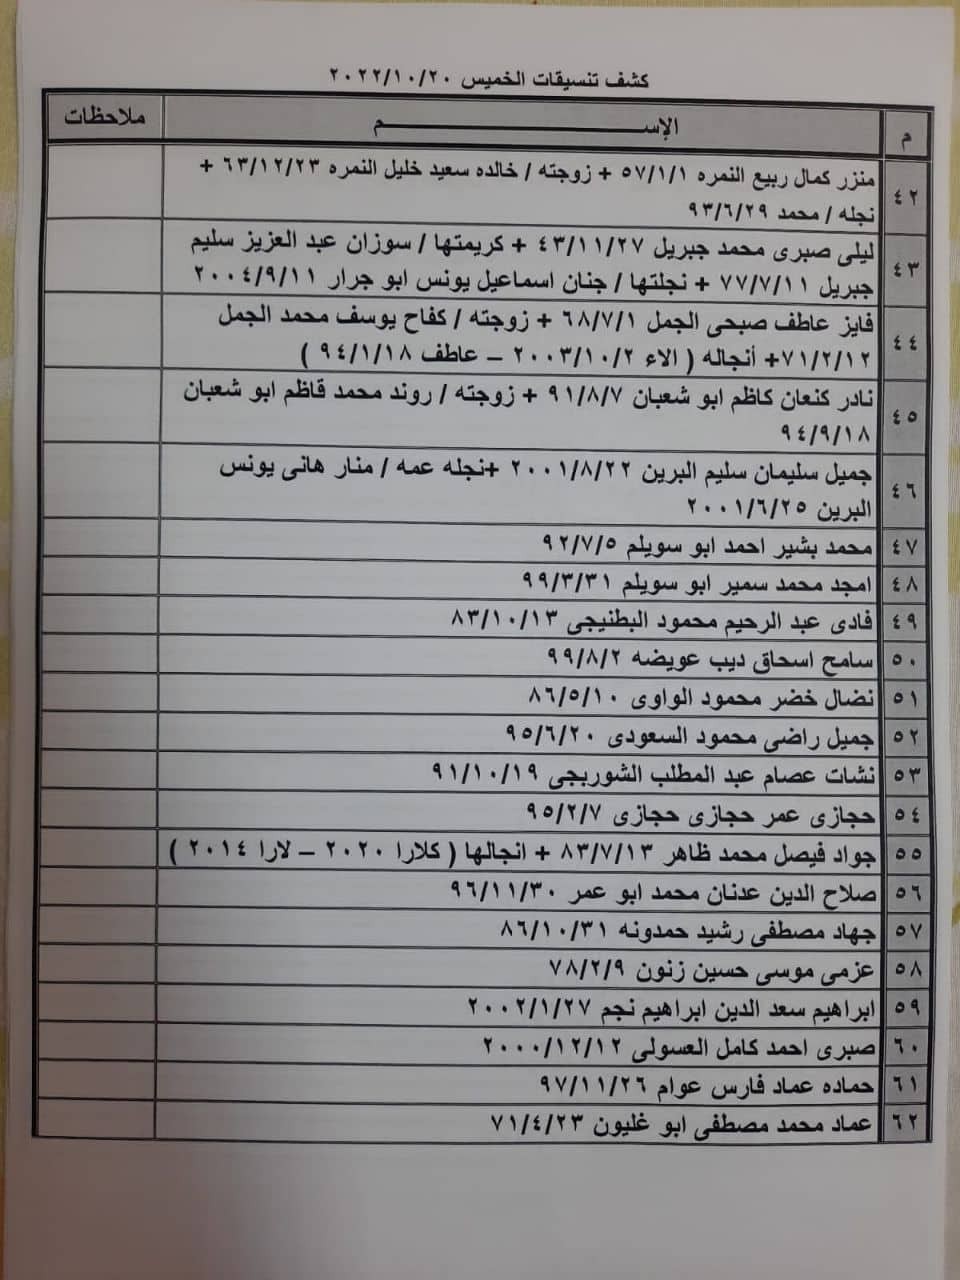 كشف تنسيقات الخميس ٢٠٢٢/١٠/٢٠
م الإســـــــــــــــم ملاحظات
٤٢ منزر كمال ربيع النمره ٥٧/١/١ + زوجته / خالده سعيد خليل النمره ٦٣/١٢/٢٣ +
نجله / محمد ٩٣/٦/٢٩
٤٣ ليلى صبرى محمد جبريل ٤٣/١١/٢٧ + كريمتها / سوزان عبد العزيز سليم
جبريل ٧٧/٧/١١ + نجلتها / جنان اسماعيل يونس ابو جرار ٢٠٠٤/٩/١١
٤٤ فايز عاطف صبحى الجمل ٦٨/٧/١ + زوجته / كفاح يوسف محمد الجمل
٧١/٢/١٢+ أنجاله ( الاء ٢٠٠٣/١٠/٢ – عاطف ٩٤/١/١٨ )
٤٥ نادر كنعان كاظم ابو شعبان ٩١/٨/٧ + زوجته / روند محمد قاظم ابو شعبان
٩٤/٩/١٨
٤٦ جميل سليمان سليم البرين ٢٠٠١/٨/٢٢ +نجله عمه / منار هانى يونس
البرين ٢٠٠١/٦/٢٥
٤٧ محمد بشير احمد ابو سويلم ٩٢/٧/٥
٤٨ امجد محمد سمير ابو سويلم ٩٩/٣/٣١
٤٩ فادى عبد الرحيم محمود البطنيجى ٨٣/١٠/١٣
٥٠ سامح اسحاق ديب عويضه ٩٩/٨/٢
٥١ نضال خضر محمود الواوى ٨٦/٥/١٠
٥٢ جميل راضى محمود السعودى ٩٥/٦/٢٠
٥٣ نشات عصام عبد المطلب الشوربجى ٩١/١٠/١٩
٥٤ حجازى عمر حجازى حجازى ٩٥/٢/٧
٥٥ جواد فيصل محمد ظاهر ٨٣/٧/١٣ + انجالها ( كلارا ٢٠٢٠ – لارا ٢٠١٤ )
٥٦ صلاح الدين عدنان محمد ابو عمر ٩٦/١١/٣٠
٥٧ جهاد مصطفى رشيد حمدونه ٨٦/١٠/٣١
٥٨ عزمى موسى حسين زنون ٧٨/٢/٩
٥٩ ابراهيم سعد الدين ابراهيم نجم ٢٠٠٢/١/٢٧
٦٠ صبرى احمد كامل العسولى ٢٠٠٠/١٢/١٢
٦١ حماده عماد فارس عوام ٩٧/١١/٢٦
٦٢ عماد محمد مصطفى ابو غليون ٧١/٤/٢٣